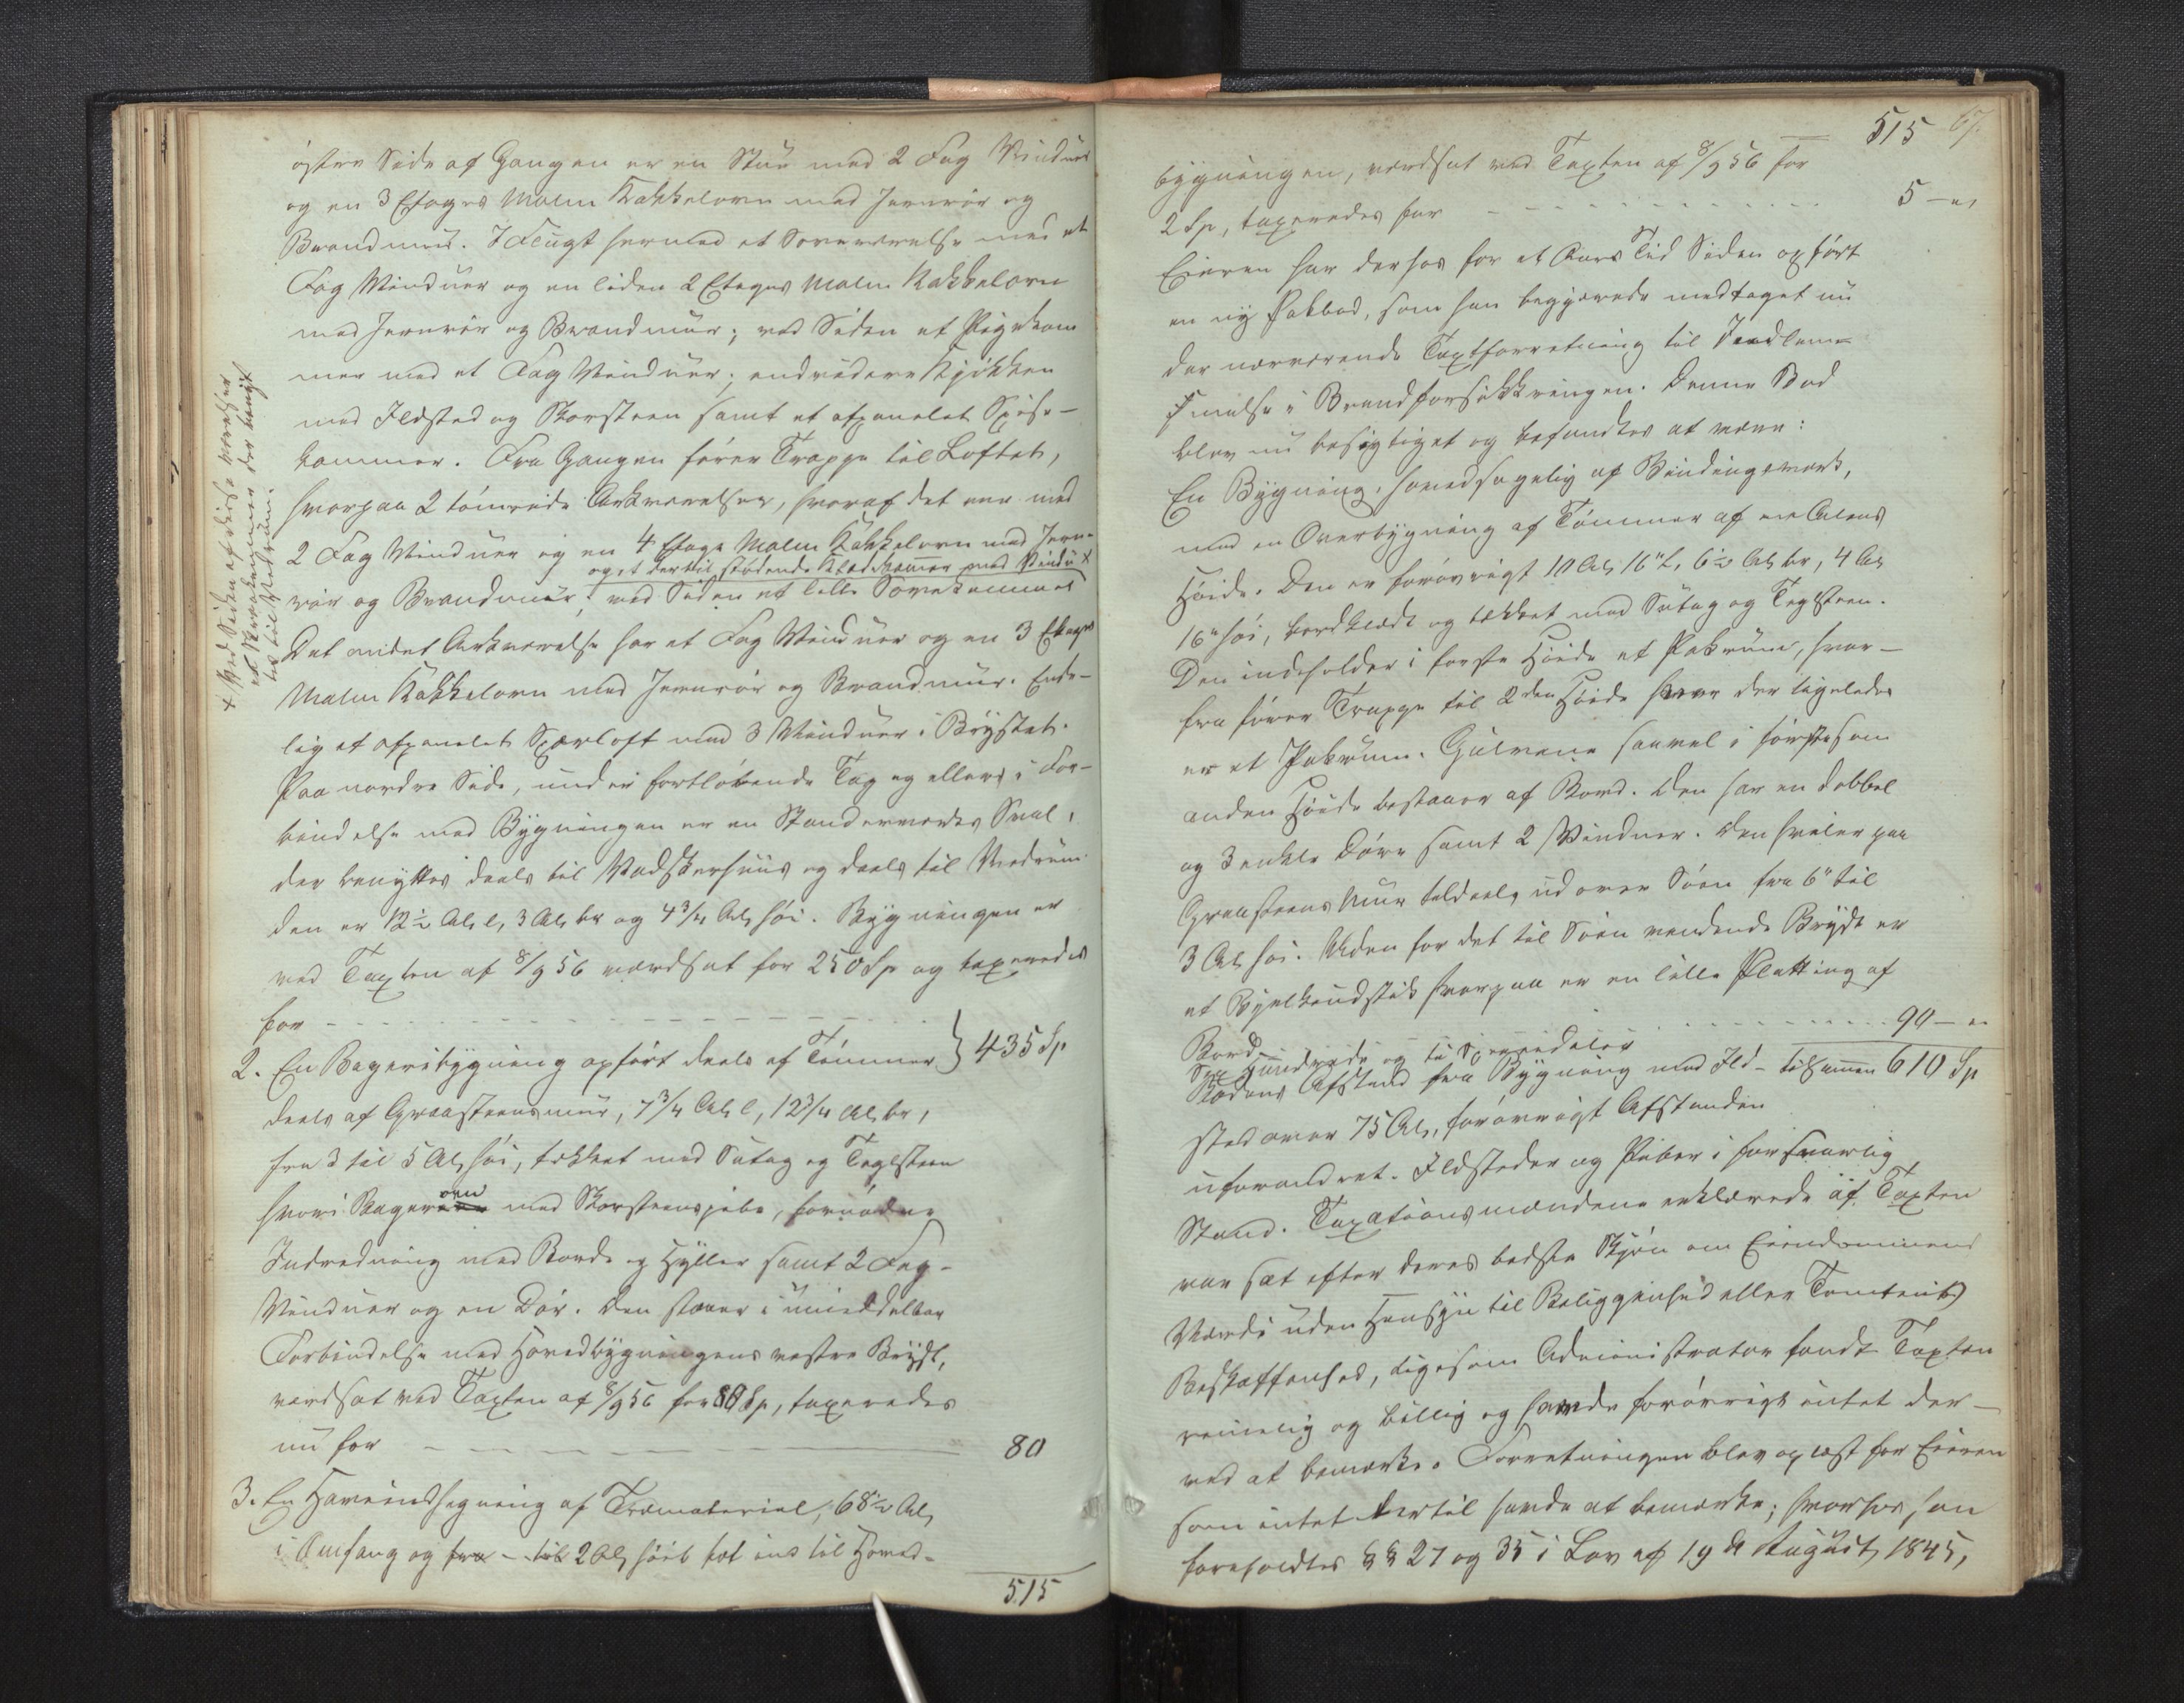 östre Side af Gangen er en Stue med 2 Fag Vinduer
og en 3 Etages Malm Kakkelovn med Jernrör og
Brandmur. I Flugt hermed et Soveværelse med et
Fag Vinduer og en liden 2 Etages Malm Kakkelovn
med Jernrör og Brandmuur; ved Siden et Pigekam
mer med et Fag Vinduer; endvidere Kjökken
med Ildsted og Skorsteen samt et afpanelet Spise-
kammer. Fra Gangen förer Trappe til Loftet,
hvorpaa 2 tömrede Arkværelser, hvoraf det ene med
2 Fag Vinduer og en 4 Etage Malm Kakkelovn med Jern-
og et dertil stödende Klædekammer med Vindu x
rör og Brandmuur; ved Siden et lille Sovekammer
Det andet Arkværelse har et Fag Vinduer og en 3 Etages
Malm Kakkelovn med Jernrör og Brandmuur. Ende-
lig et afpanelet Spærloft med 3 Vinduer i Brystet.
Paa nordre Side, under fortlöbende Tag og ellers i For-
bindelse med Bygningen er en Standerverks Sval,
der benyttes deels til Vadskerhuus og deels til Vedrum
den er 12½ Al. l, 3 Al. br og 4¾ Al. höi. Bygningen er
ved Taxten af 8/9 56 værdsat for 250 Sp og taxeredes
for - - - } 435 Sp
2. En Bageribygning opfört deels af Tömmer
deels af Graasteensmuur, 7¾ Al. l, 12¾ Al. br,
fra 3 til 5 Al. höi, tækket med Sutag og Teglsteen
hvori Bagerovn med Skorsteenspibe, fornöden
Indredning med Borde og Hyller samt 2 Fag
Vinduer og en Dör. Den staaer i umiddelbar
Forbindelse med Hovedbygningens vestre Bryst,
værdsat ved Taxten af 8/9 56 for 80 Sp, taxeredes
nu for - - - 80
3. En Haveindhegning af Træmateriel, 68½ Al.
i Omfang og fra - til 2 Al. höit tæt ind til Hoved-
515
x Ved Siden af disse Værelser
et Skraakammer der benyt
tes til Vedrum.
515 67.
bygningen, værdsat ved Taxten af 8/9 56 for
2 Sp, taxeredes for - - - 5 - "
Eieren har derhos for et Aars Tid Siden opfört
en ny Pakbod, som han begjærede medtaget un
der nærværende Taxtforretning til Indlem-
melse i Brandforsikkringen. Denne Bod
blev nu besigtiget og befandtes at være:
En Bygning, hovedsagelig af Bindingsverk,
med en Overbygning af Tömmer af en Alens
Höide. Den er forövrigt 10 Al. 16" l, 6½ Al. br, 4 Al.
16" höi, bordklædt og tækket med Sutag og Teglsteen.
Den indeholder i förste Höide et Pakrum, hvor-
fra förer Trappe til 2den Höide hvor der ligeledes
er et Pakrum. Gulvene saavel i förste som
anden Höide bestaaer af Bord. Den har en dobbel
og 3 enkle Döre samt 2 Vinduer. Den hviler paa
Graasteens Muur tildeels ud over Söen fra 6" til
3 Al. höi. Uden for det til Söen vendende Bryst er
et Bjelkeudstik hvorpaa er en lille Platting af
Bord - - - 90 - "
Sex Hundrede og ti Speciedaler tilsammen 610 Sp
Bodens Afstand fra Bygning med Ild-
sted over 75 Al., forövrigt Afstanden
uforandret. Ildsteder og Piber i forsvarlig
Stand. Taxationsmændene erklærede at Taxten
var sat efter deres bedste Skjön om Eiendommens
Værdi uden Hensyn til Beliggenhed eller Tomtens
Beskaffenhed, ligesom Administrator fandt Taxten
rimelig og billig og havde forövrigt intet der-
ved at bemærke. Forretningen blev oplæst for Eieren
som intet dertil havde at bemærke; hvorhos han
foreholdtes §§ 27 og 35 i Lov af 19de August 1845,